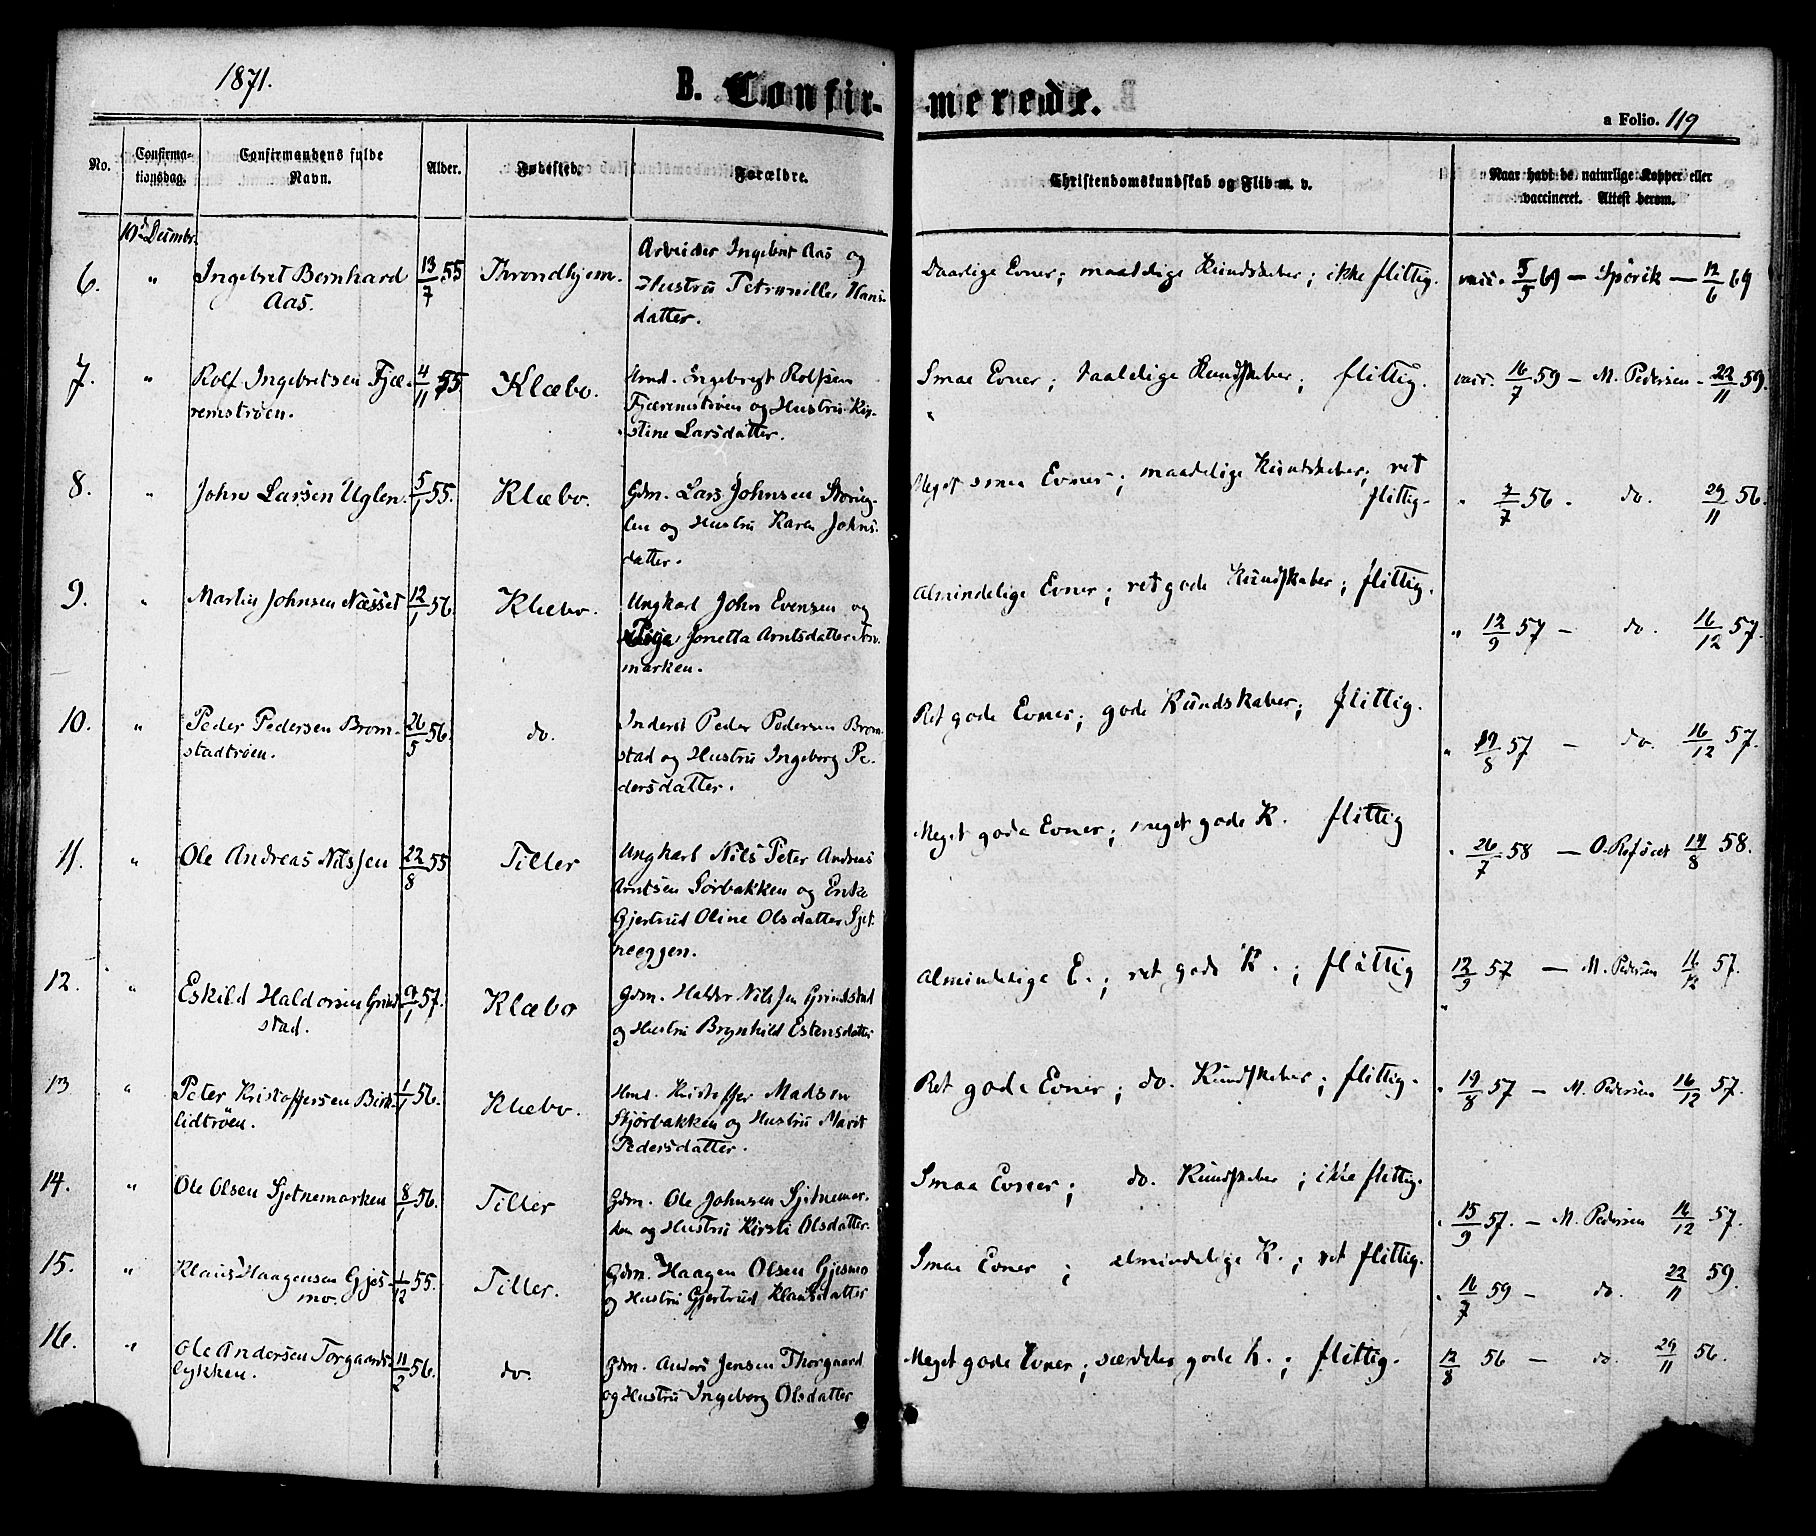 1871.
B. Confir-
merede.
a Folio. 119
No.
Confirma-
tionsdag.
Confirmandens fulde
Navn.
Alder.
Fødested.
Forældre.
Christendomskundskab og Flid m. v.
Naar havt de naturlige Kopper eller
vaccineret. Attest derom.
10de Decembr.
6. " Ingebret Bernhard 13/7 55 Throndhjem. Arbeider Ingebret Aas og
Aas. Hustru Petronille Hans-
datter.
Daarlige Evner; maadelige Kundskaber; ikke flittig. vacc. 5/5 69 — Spörck — 12/6 69
7. " Rolf Ingebretsen Fjæ- 4/11 55 Klæbo. Hmd. Ingebrigt Rolfsen
remstrøen. Fjæremstrøen og Hustru Kir-
stine Larsdatter.
Smaa Evner; taalelige Kundskaber; flittig. vacc. 16/7 59 — M. Pedersen - 22/11 59.
8. " John Larsen Uglen. 5/1 55. Klæbo. Gdm. Lars Johnsen Storug-
len og Hustru Karen Johns-
datter.
Meget smaa Evner; maadelige Kundskaber; ret
flittig. " 7/7 56 - do. 29/11 56.
9. " Martin Johnsen Næsset 12/1 56. Klæbo. Ungkarl John Evensen og
Pige Jonetta Arntsdatter
marken.
Almindelige Evner; ret gode Kundskaber; flittig. " 12/9 57 - do. 16/12 57.
10. " Peder Pedersen Brøm- 26/5 56. do. Inderst Peder Pedersen Brøm-
stadtrøen. stad og Hustru Ingeborg Pe-
dersdatter.
Ret gode Evner; gode Kundskaber; flittig. " 19/8 57 — do. 16/12 57.
11. " Ole Andreas Nilssen 22/8 55 Tiller Ungkarl Nils Peter Andreas
Arntsen Sørbakken og Enke
Gjertrud Oline Olsdatter Sjet-
neeggen.
Meget gode Evner; meget gode K. flittig " 26/7 58 — O. Refsaas 14/8 58.
12. " Eskild Haldorsen Grind- 9/1 57. Klæbo Gdm. Haldor Nilssen Grindstad
stad. og Hustru Brynhild Estensdatter
Almindelige E.; ret gode K.; flittig 12/9 57 — M. Pedersen 16/12 57.
13 " Peter Kristoffersen Birk- 1/1 56. Klæbo. Hmd. Kristoffer Madsen
lidtrøen. Skjørbakken og Hustru Marit
Pedersdatter.
Ret gode Evner; do. Kundskaber; flittig. " 19/8 57 — M. Pedersen 16/12 57.
14. " Ole Olsen Sjetnemarken 8/1 56. Tiller Gdm. Ole Johnsen Sjetnemar-
ken og Hustru Kirsti Olsdatter.
Smaa Evner; do. Kundskaber; ikke flittig. " 15/9 57. — M. Pedersen 16/12 57.
15. " Klaus Haagensen Gjes- 1/12 55. Tiller. Gdm. Haagen Olsen Gjesmo
mo. og Hustru Gjertrud Klausdatter
Smaa Evner; almindelige K.; ret flittig. " 16/7 59 - do. 22/11 59.
16. " Ole Andersen Torgaards- 11/2 56. do. Gdm. Anders Jensen Thorgaard
lykken. og Hustru Ingeborg Olsdatter
Meget gode Evner; særdeles gode K.; flittig. 12/8 56 — do. 29/11 56.